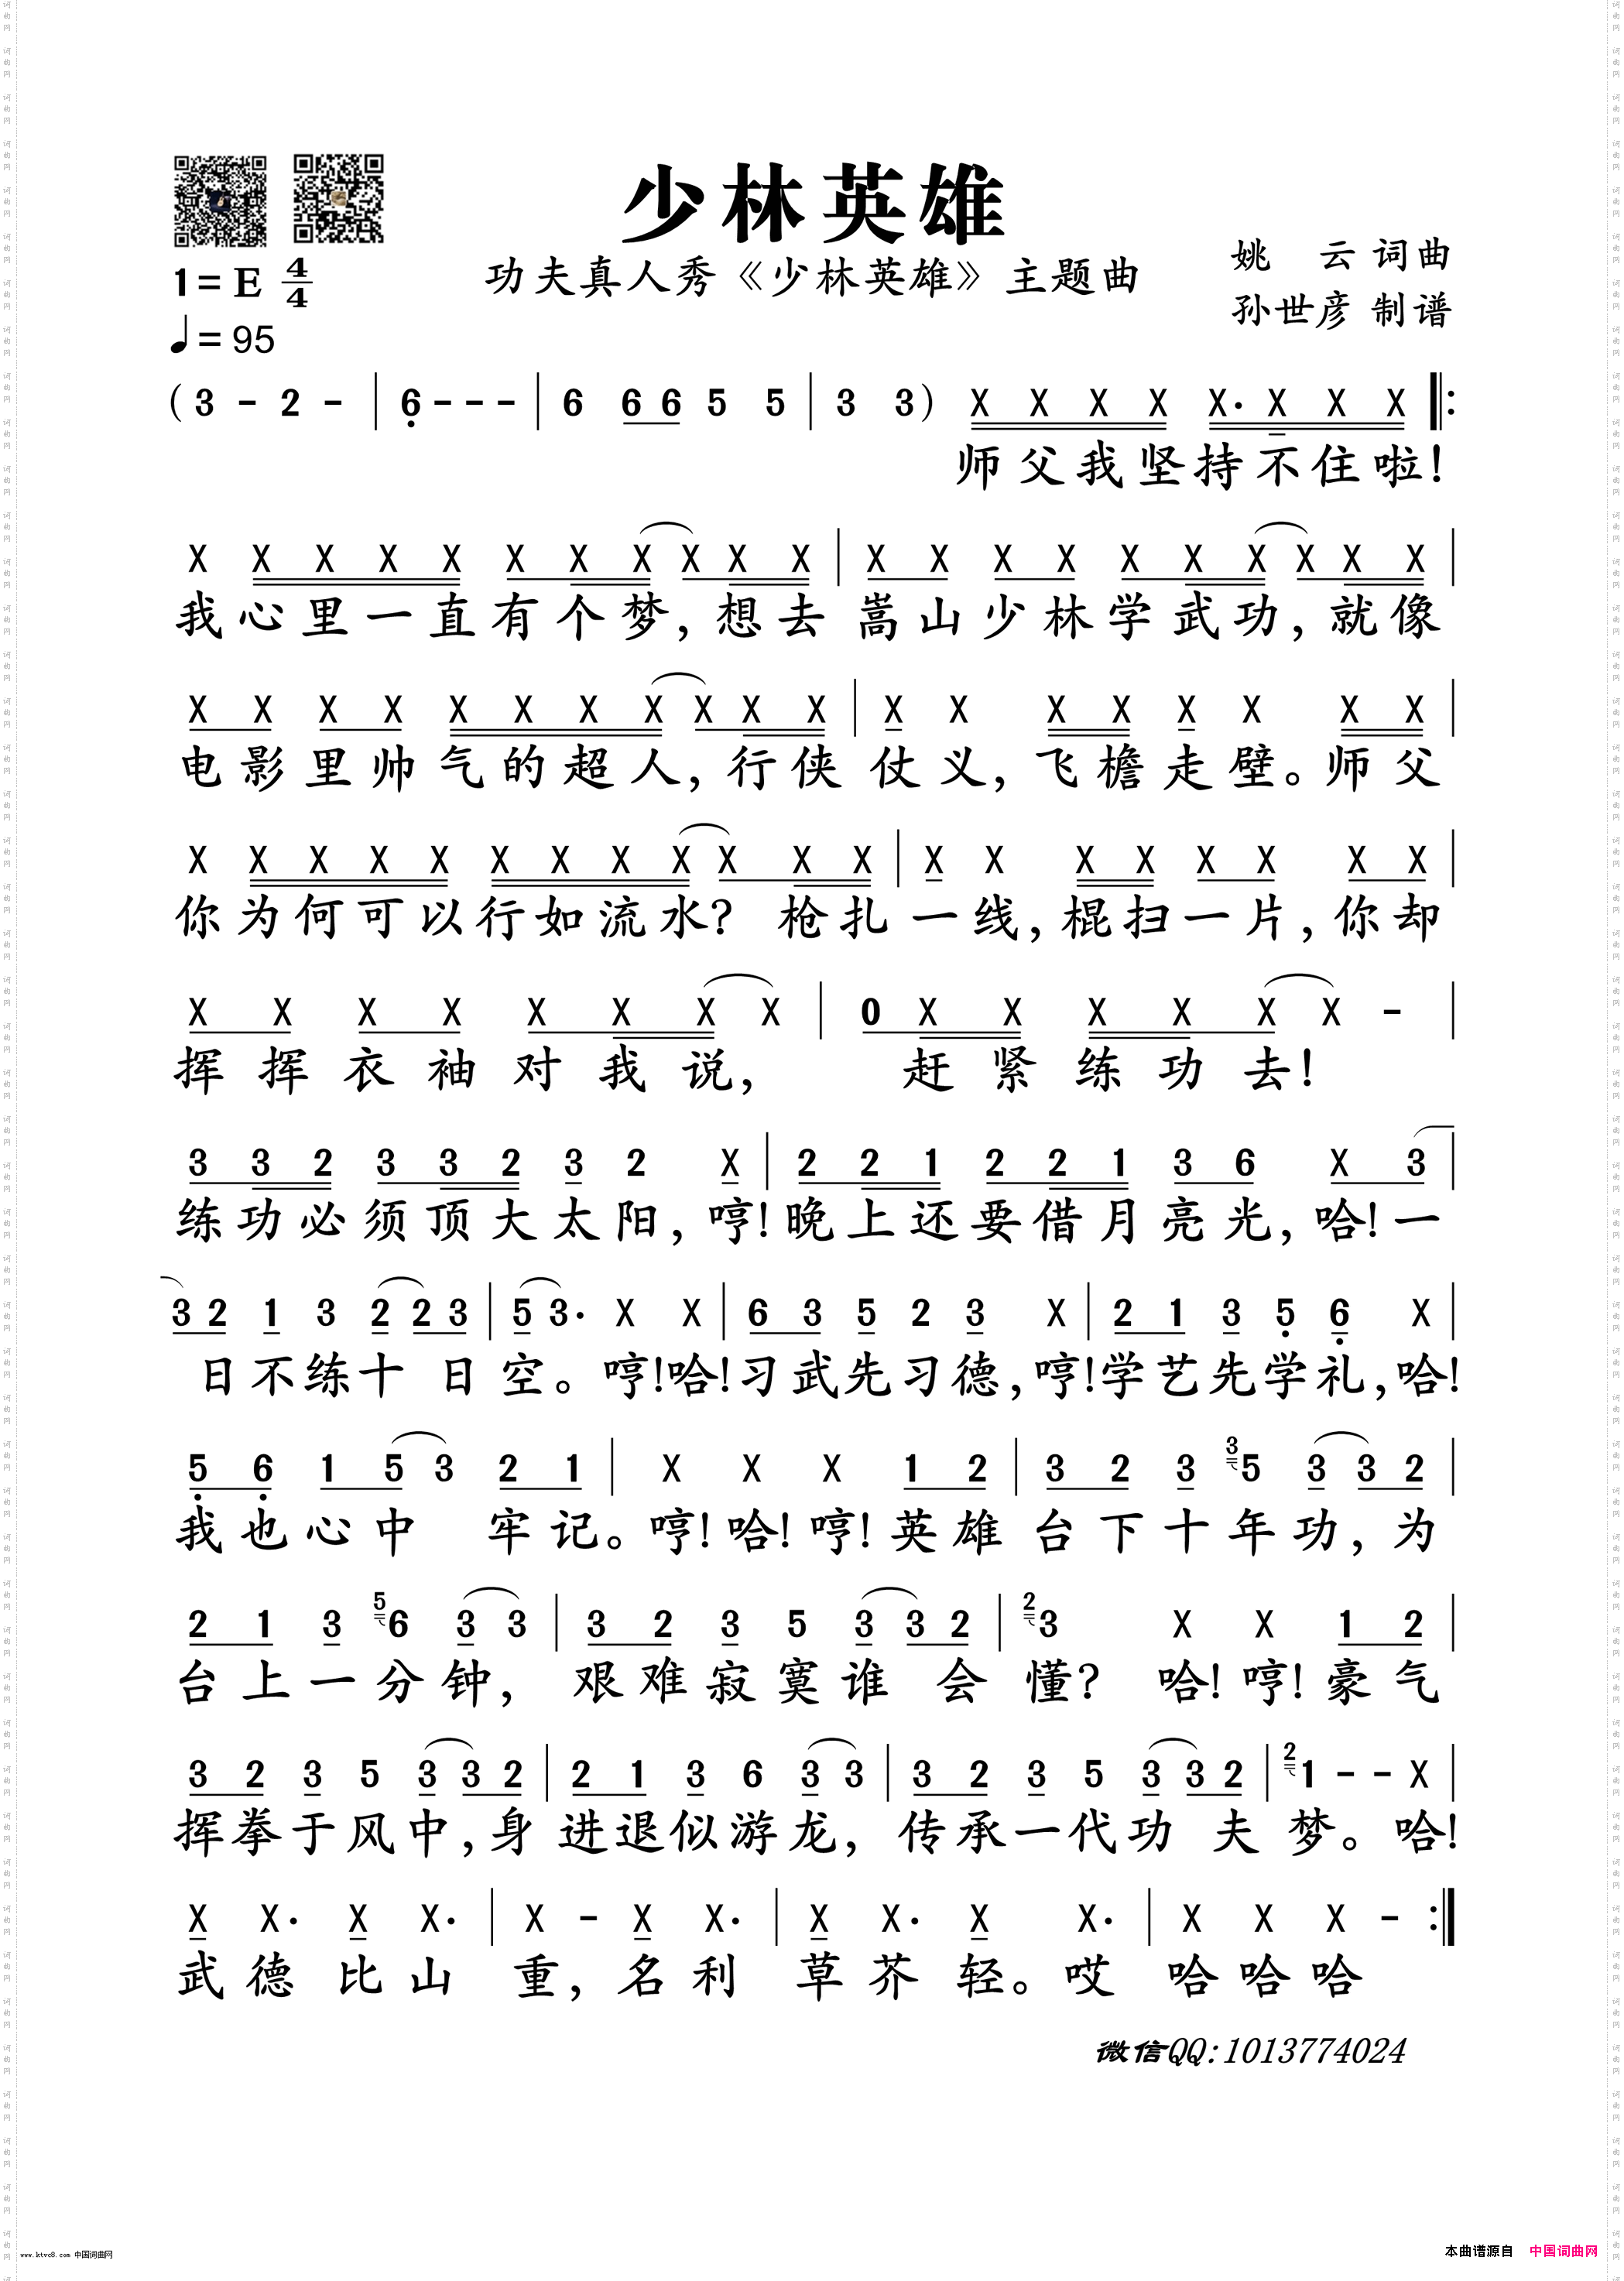 少林英雄
功夫真人秀《少林英雄》主题曲
姚 云 词曲
孙世彦 制谱
1=E 4/4
♩=95
(3 - 2 - | 6̣ - - - | 6 6 6 5 5 | 3 3) X X X X X· X X X |:
师父我坚持不住啦!
X X X X X X X X X X X | X X X X X X X X X X
我心里一直有个梦,想去 嵩山少林学武功,就像
X X X X X X X X X X X | X X X X X X X X |
电影里帅气的超人,行侠仗义,飞檐走壁。师父
X X X X X X X X X X X X | X X X X X X X X |
你为何可以行如流水? 枪扎一线,棍扫一片,你却
X X X X X X X X | 0 X X X X X X - |
挥挥衣袖对我说, 赶紧练功去!
3 3 2 3 3 2 3 2 X | 2 2 1 2 2 1 3 6 X 3 |
练功必须顶大太阳,哼!晚上还要借月亮光,哈!一
3 2 1 3 2 2 3 | 5 3· X X | 6 3 5 2 3 X | 2 1 3 5̣ 6̣ X |
日不练十 日 空。哼!哈!习武先习德,哼!学艺先学礼,哈!
5̣ 6̣ 1 5 3 2 1 | X X X 1 2 | 3 2 3 3 5 3 3 2 |
我也心中 牢记。哼!哈!哼!英雄 台下十年功,为
2 1 3 5 6 3 3 | 3 2 3 5 3 3 2 | 2 3 X X 1 2 |
台上一分钟, 艰难寂寞谁 会 懂? 哈!哼!豪气
3 2 3 5 3 3 2 | 2 1 3 6 3 3 | 3 2 3 5 3 3 2 | 2 1 - - X |
挥拳于风中,身 进退似游龙, 传承一代功 夫 梦。哈!
X X· X X· | X - X X· | X X· X X· | X X X - :|
武德比山 重,名利 草芥轻。哎 哈哈哈
微信QQ:1013774024
www.ktvc8.com 中国词曲网
本曲谱源自 中国词曲网